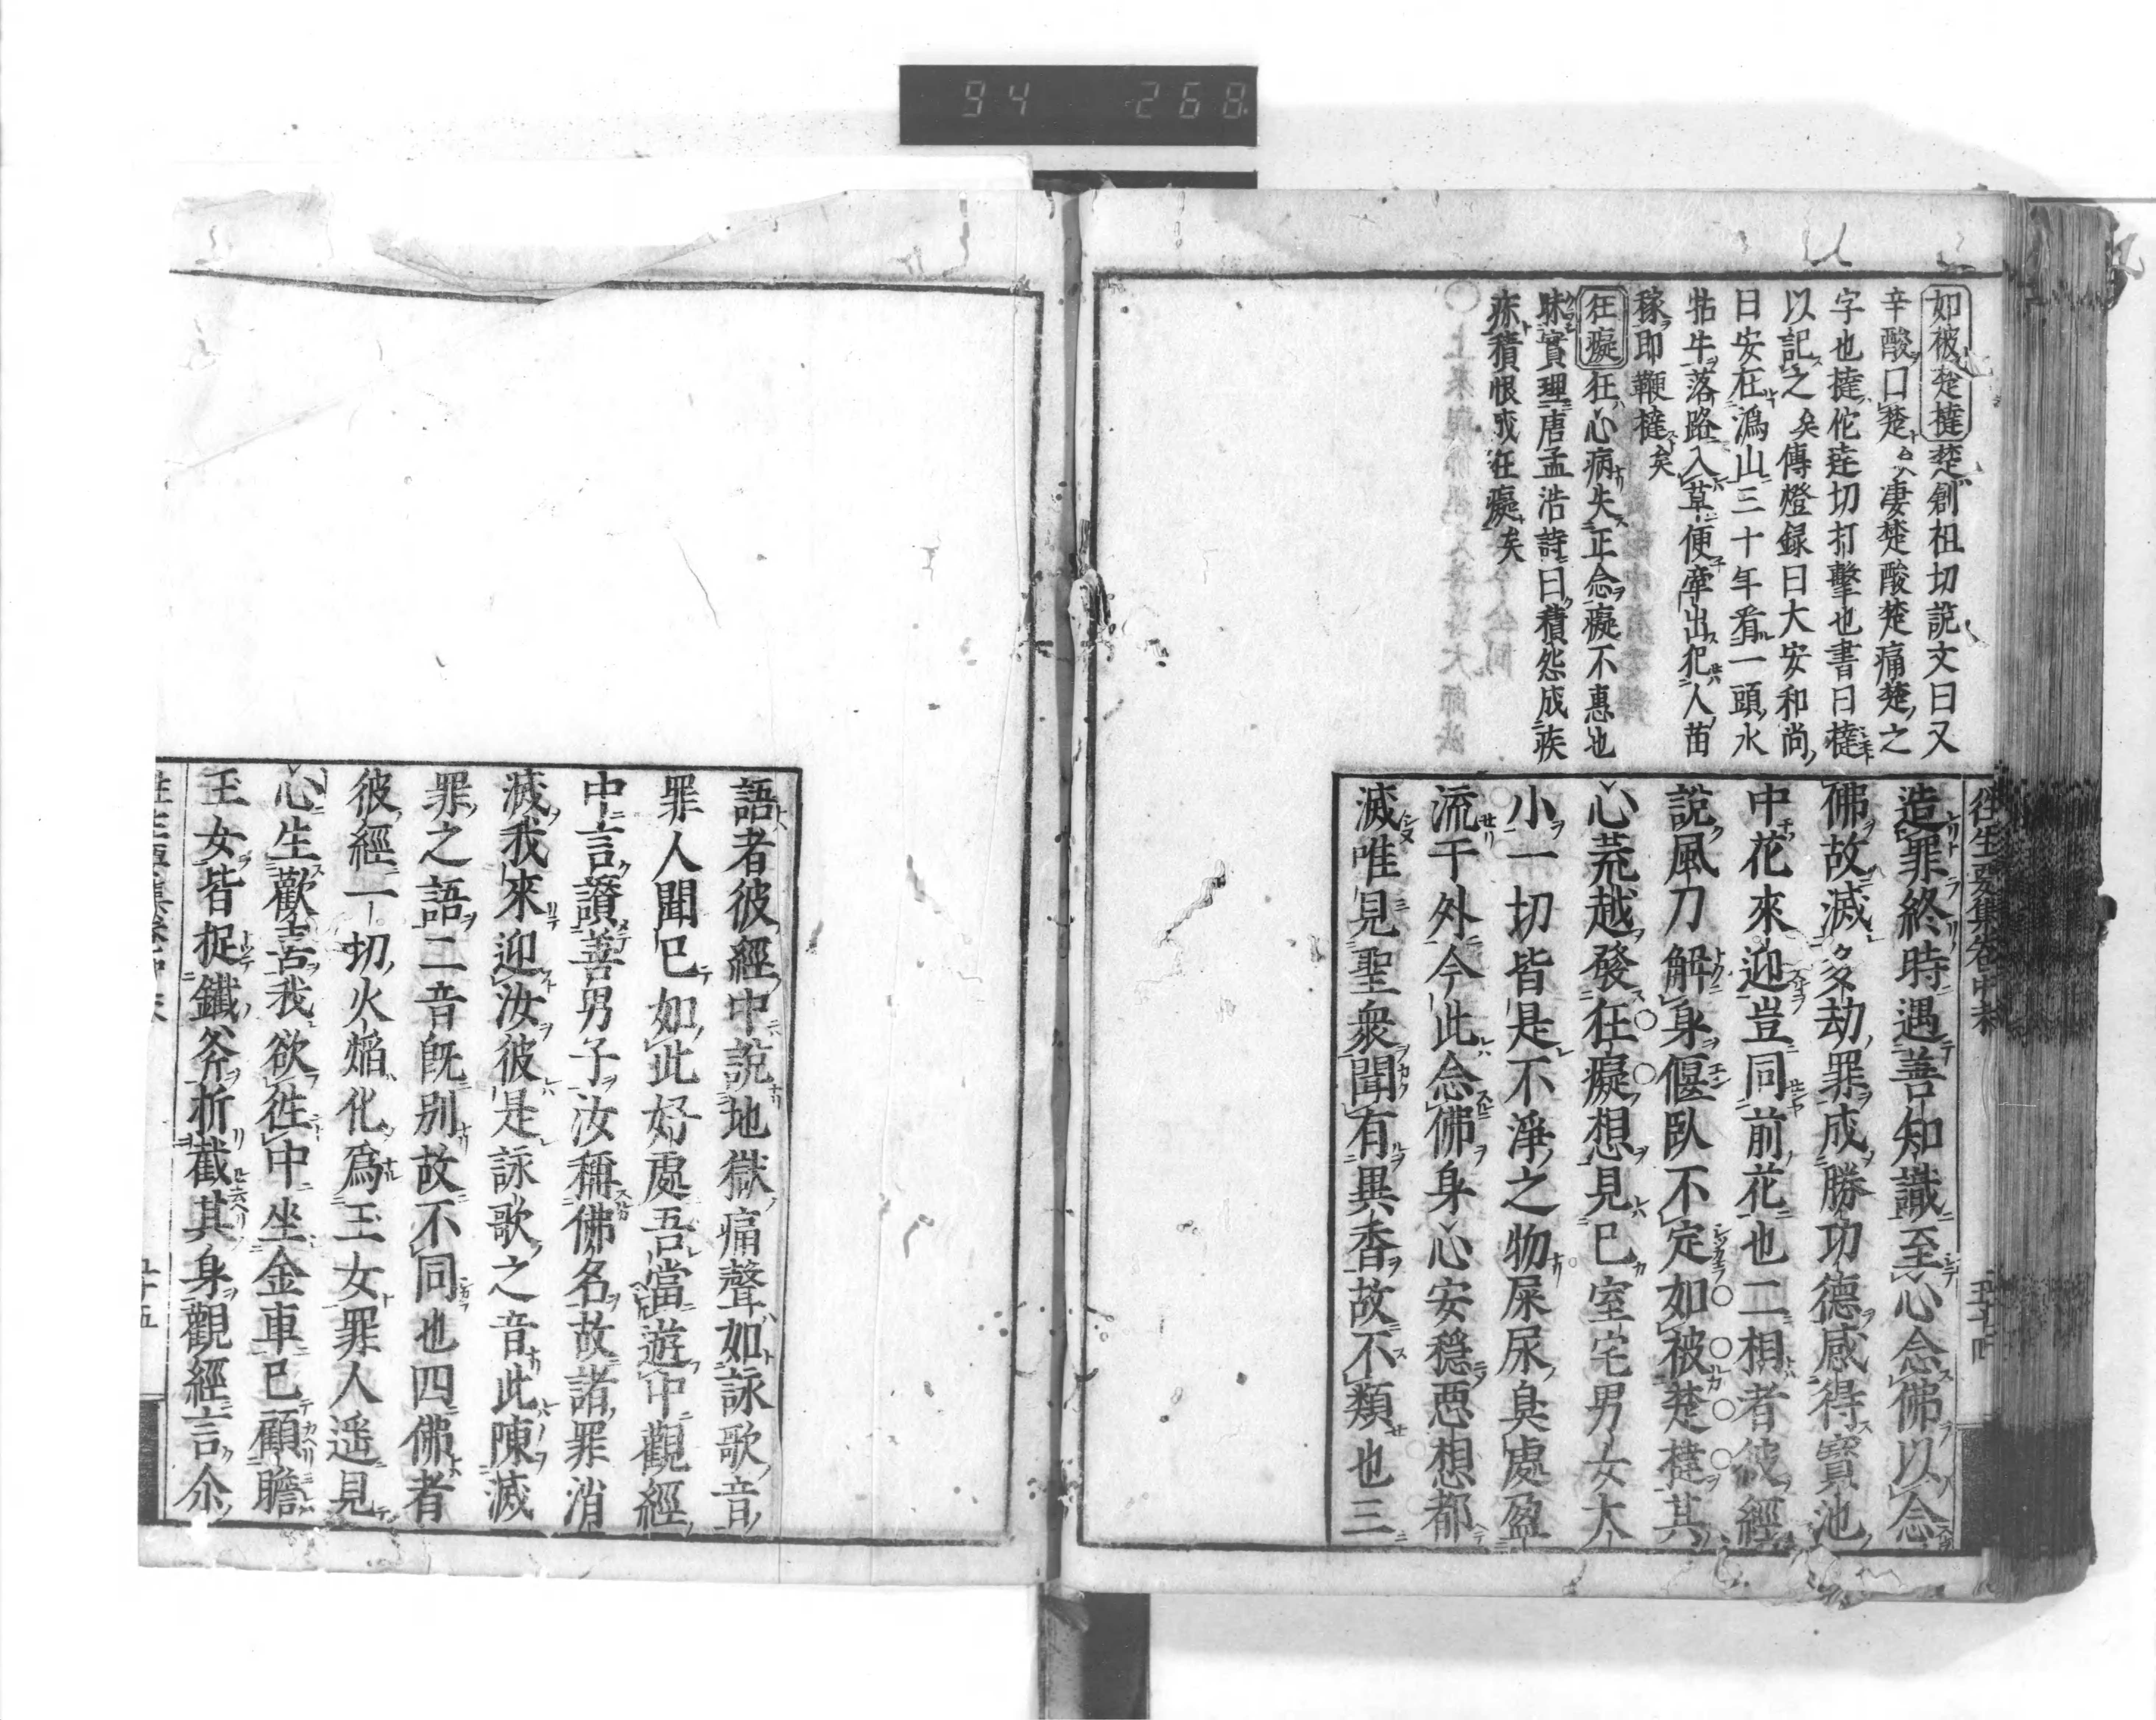 94 268
如被楚撻楚創祖切說文曰又
辛酸口楚凄楚酸楚痛楚之
字也撻佗達切打擊也書曰撻
以記之矣傳燈録曰大安和尚
日安在潙山三十年看一頭水
牯牛落路入草便牽出犯人苗
稼即鞭撻矣
狂癡狂心病失正念癡不惠也
昧實理唐孟浩詩曰積怨成疾
疢積恨成狂癡矣
往生要集卷中末
造罪終時遇善知識至心念佛以念
佛故滅多劫罪成勝功德感得寳池
中花來迎豈同前花也二相者彼經
說風刀解身偃臥不定如被楚撻其
心荒越發狂癡想見已室宅男女大
小一切皆是不淨之物屎尿臭處盈
流于外今此念佛身心安穩惡想都
滅唯見聖衆聞有異香故不類也三
語者彼經中說地獄痛聲如詠歌音
罪人聞已如此好處吾當遊中觀經
中言讃善男子汝稱佛名故諸罪消
滅我來迎汝彼是詠歌之音此陳滅
罪之語二音旣別故不同也四佛者
彼經一切火焔化爲玉女罪人遥見
心生歡喜我欲徃中坐金車已顧瞻
玉女皆捉鐵斧折截其身觀經言尒